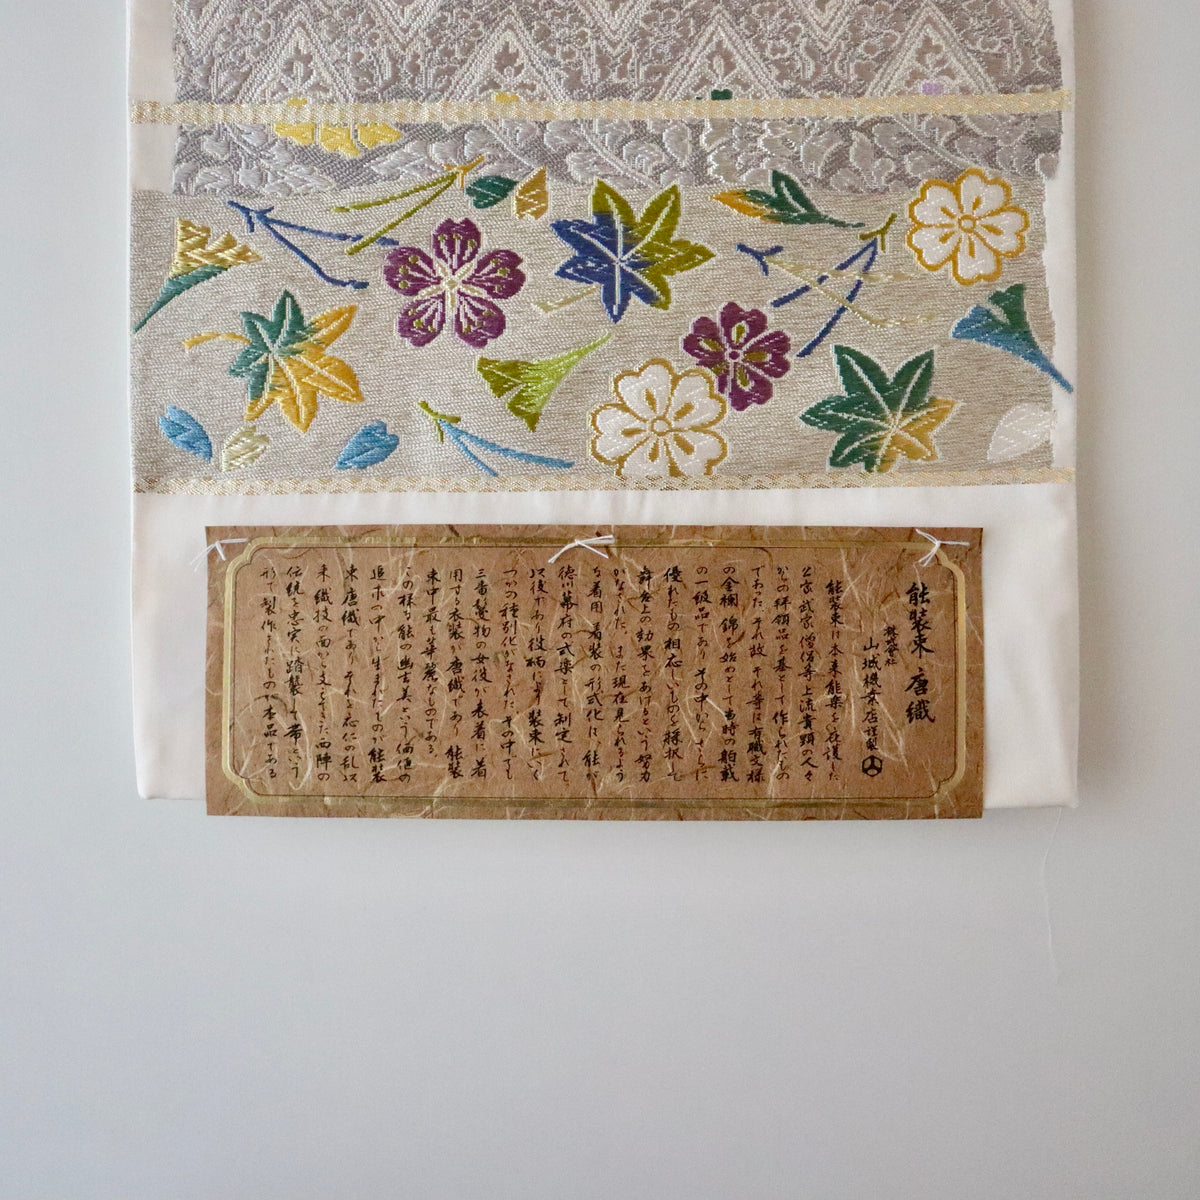 能装束 唐織
株式会社
山城機業店謹製
能装束は本来能楽を庇護した
公家武家僧侶等上流貴顕の人々
からの拝領品を基として作られたもの
であった。それ故、それ等は有職文様
の金襴、錦を始めとして当時の舶載
の一級品であり、その中からさらに
優れたもの相応しいものを採択して
舞台上の効果をあげるという努力
がなされた。また現在見られるよう
な着用、着装の形式化は、能が
徳川幕府の式楽として制定されて
以後であり、役柄により装束にいく
つかの種別化がなされた。その中でも
三番鬘物の女役が表着に着
用する衣装が唐織であり、能装
束中最も華麗なものである。
この様な能の幽玄美という価値の
追求の中から生まれたものが能装
束唐織であり、それを応仁の乱以
来織技の面でささえてきた西陣の
伝統を忠実に踏襲して帯という
形で製作されたものが本品である